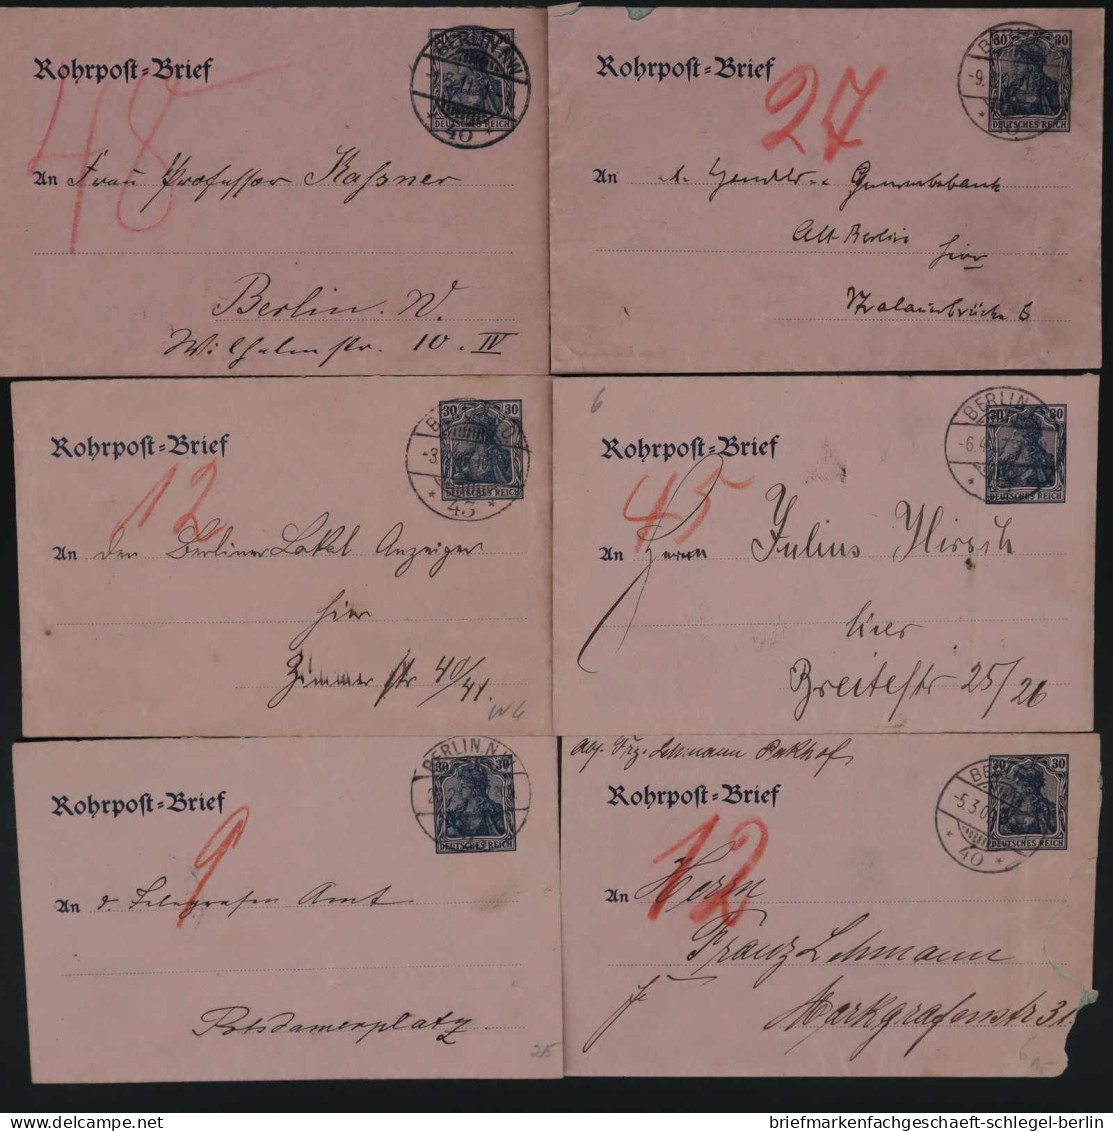 Rohrpost-Brief
30 30
BERLIN N.W.
40
DEUTSCHES REICH
48
An Frau Professor Kassner
Berlin. W.
Wilhelmstr. 10. IV
Rohrpost-Brief
30 30
DEUTSCHES REICH
27
An
Gewerbebank
Alt Berlin
hier
Stralauerbrücke 6
Rohrpost-Brief
30 30
43
DEUTSCHES REICH
12
An den Berliner Lokal Anzeiger
hier
Zimmerstr 40/41.
Rohrpost-Brief
6
30 30
BERLIN
-6.4
DEUTSCHES REICH
45
An Herrn Julius Hirsch
hier
Breitestr 25/26
Rohrpost-Brief
30 30
BERLIN, N.W.
DEUTSCHES REICH
9
An d. Telegrafen Amt
Potsdamerplatz
Abs. Frz. Lehmann Packhof
Rohrpost-Brief
30 30
-5.3.0
40
DEUTSCHES REICH
12
An Herrn
Franz Lehmann
Markgrafenstr 31.
briefmarkenfachgeschaeft-schlegel-berlin